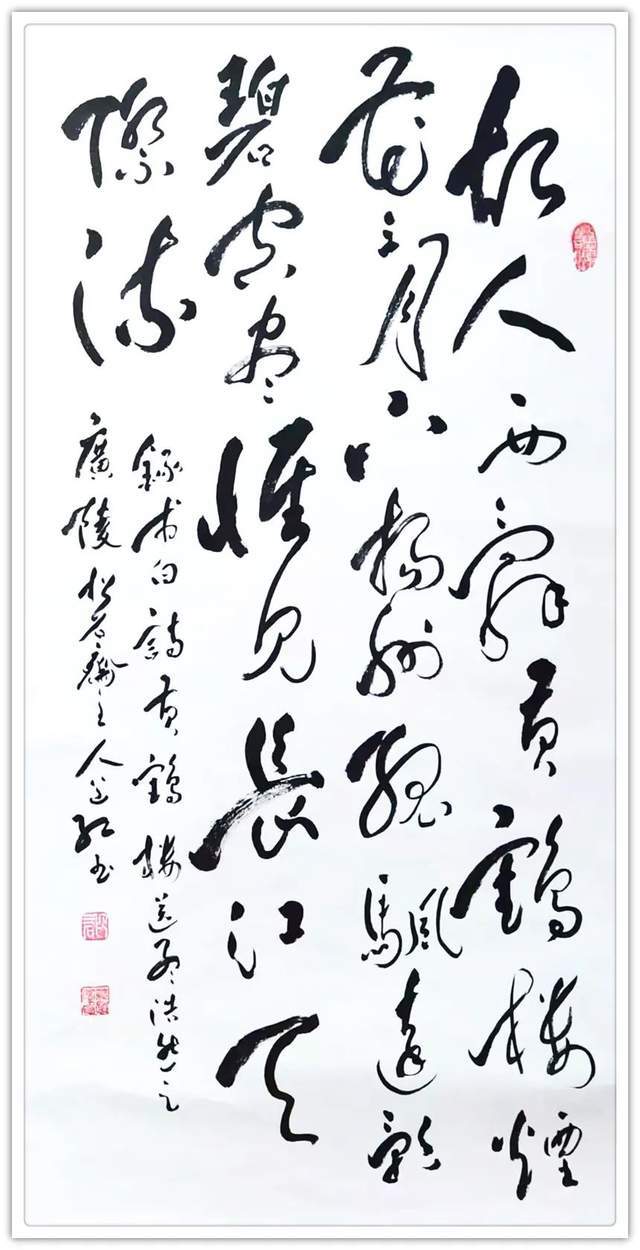 故人西辭黄鶴樓煙
花三月下揚州孤颿遠影
碧空盡惟見長江天
際流
錄李白詩黄鶴樓送孟浩然之
廣陵松石齋主人书